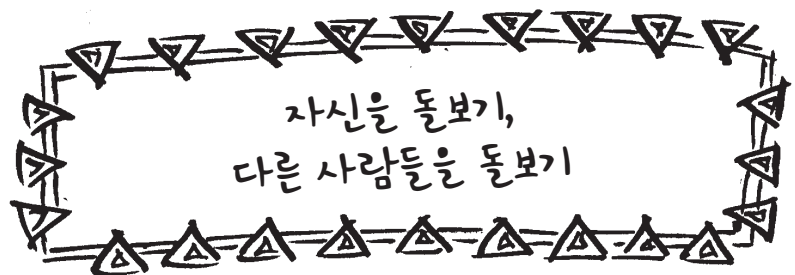 자신을 돌보기,
다른 사람들을 돌보기